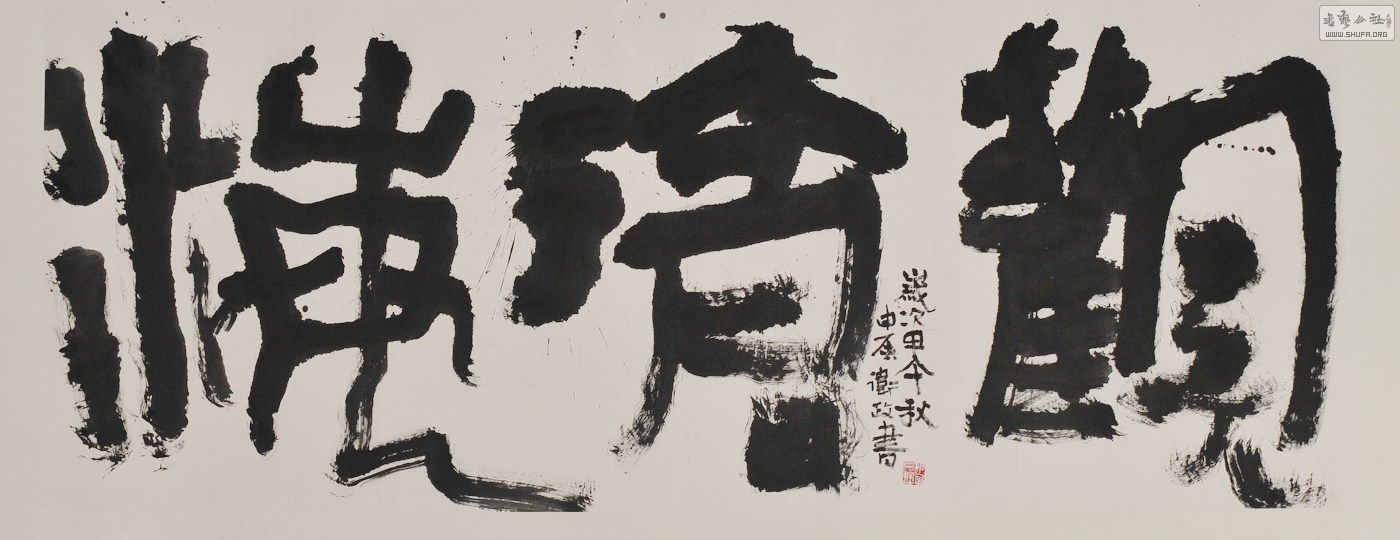 觀滄海
歲次甲午秋
中原政書
書藝公社
WWW.SHUFA.ORG